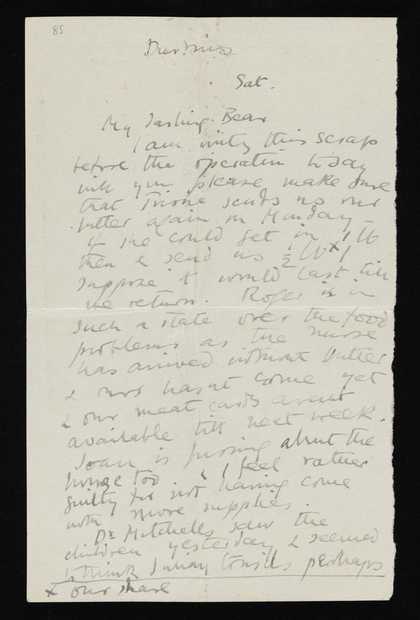 85
Sat.
My Darling Bear
I am writg this scrap
before the operation today
will you please make sure
that Trissie sends us our
butter again on Monday –
if she could get in 1 lb
then & send us ½ lb x I
suppose it would last till
we return. Roger is in
such a state over the food
problems as the nurse
has arrived without butter
& ours hasnt come yet
& our meat cards arent
available till next week.
Joan is fussing about the
too & I feel rather
guilty for not having come
with more supplies.
Dr Mitchells saw the
children yesterday & seemed
to think Julian's tonsills perhaps
x our share